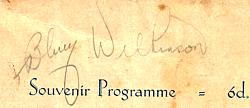 Wilkinson
Souvenir Programme = 6d.